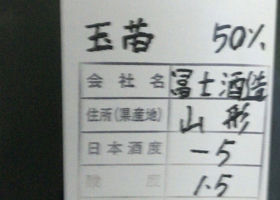 玉苗 50%
会社名 冨士酒造
住所(県産地) 山形
日本酒度 -5
酸度 1.5